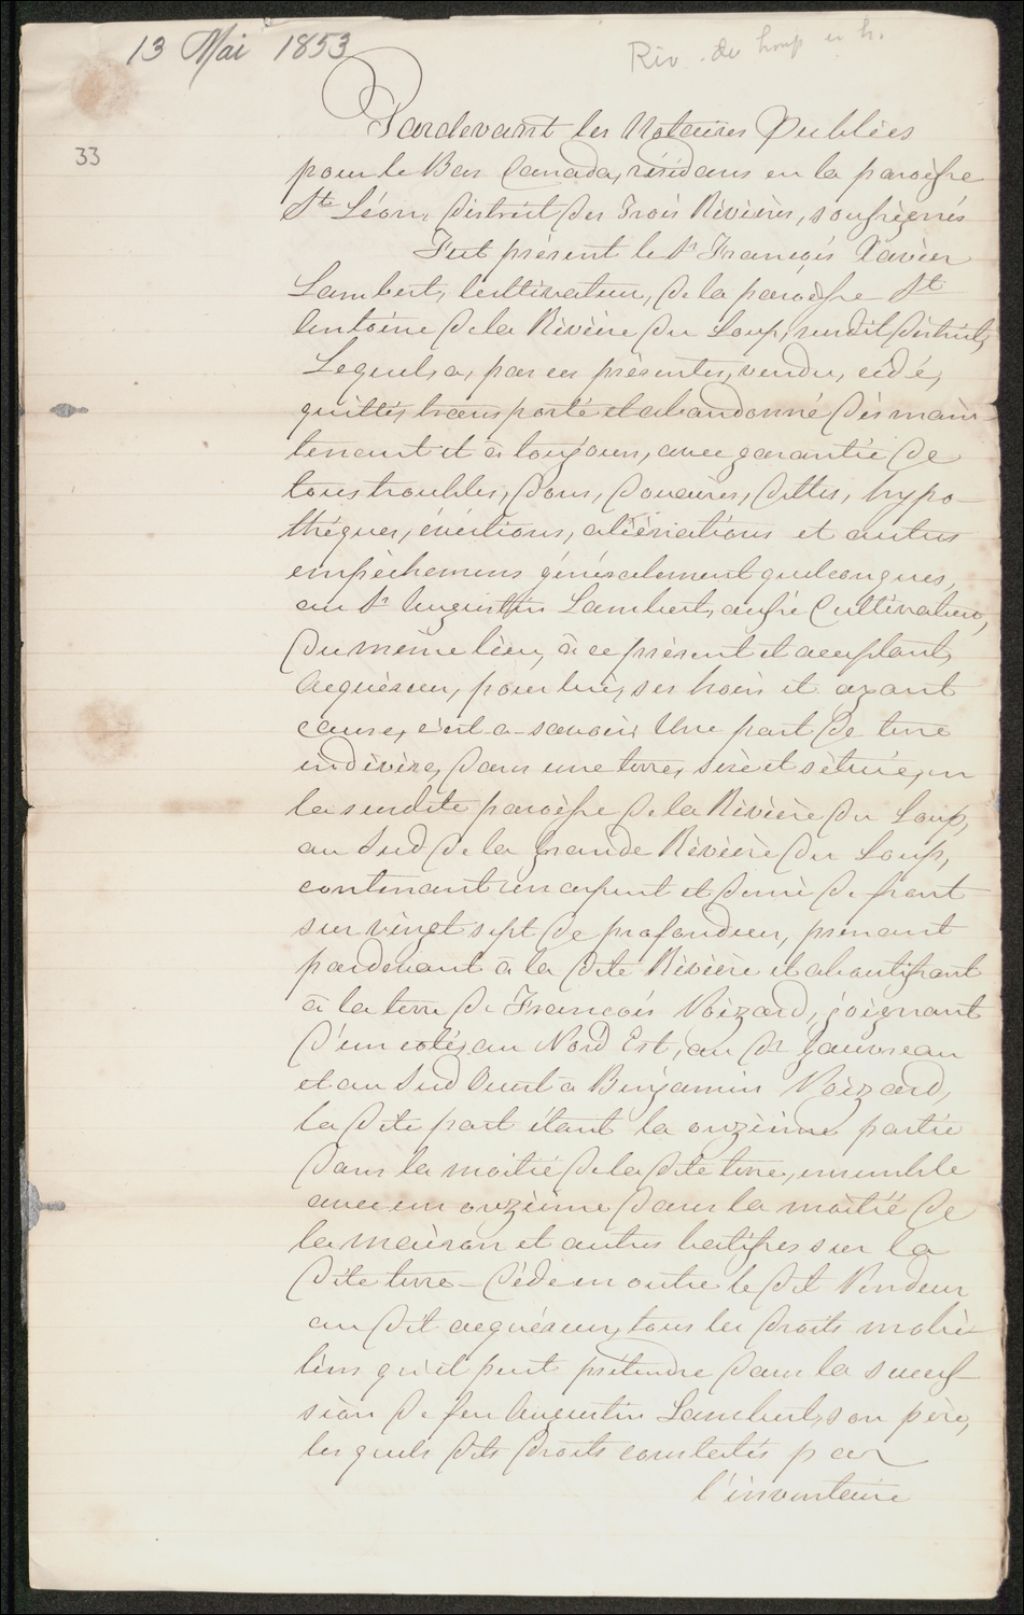 13 Mai 1853
Riv. du Loup en h.
33
Pardevant les Notaires Publics
pour le Bas Canada, résidans en la paroisse
St Léon, District des Trois Rivières, soussignés
Fut présent le Sr François Xavier
Lambert, Cultivateur, de la paroisse St
Antoine de la Rivière du Loup, susdit District,
Lequel, a, par ces présentes, vendu, cédé,
quitté, transporté et abandonné dès main-
tenant et à toujours, avec garantie de
tous troubles, dons, douaires, dettes, hypo-
thèques, évictions, aliénations et autres
empêchemens généralement quelconques,
au Sr Augustin Lambert, aussi Cultivateur,
du même lieu, à ce présent et acceptant,
Acquéreur, pour lui, ses hoirs et ayant
cause, c'est-a-savoir, Une part de terre
indivise, dans une terre, sise et située, en
la susdite paroisse de la Rivière du Loup,
au Sud de la Grande Rivière du Loup,
contenant un arpent et demi de front
sur vingt sept de profondeur, prenant
pardevant à la dite Rivière et aboutissant
à la terre de François Voizard, joignant
d'un coté, au Nord Est, au Sr Gauvreau
et au Sud Ouest à Benjamin Voizard,
la dite part étant la onzième partie
dans la moitié de la dite terre, ensemble
avec un onzième dans la moitié de
la maison et autres batisses sur la
dite terre - Cède en outre le dit Vendeur
au dit acquéreur, tous les droits mobi-
liers qu'il peut prétendre dans la succes-
sion de feu Augustin Lambert, son père,
lesquels dits droits constatés par
l'inventaire